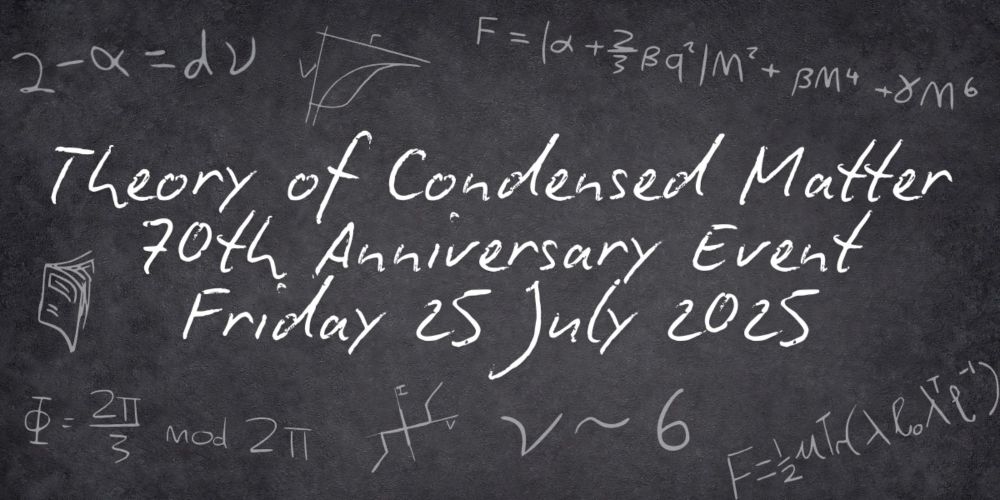 2 - α = d ν
F = |α + 2/3 β q²| M² + β M⁴ + γ M⁶
Theory of Condensed Matter
70th Anniversary Event
Friday 25 July 2025
Φ = 2π/3 mod 2π
I
V
ν ~ 6
F = 1/2 μ Tr(λ ℓ₀ λᵀ ℓ⁻¹)